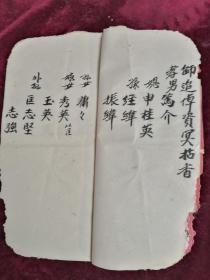 卸追悼資冥拈香
孝男篤介
媳申桂英
孫經緯
振緯
孫女蘭
孫女秀英
玉英
外孫匡志堅
志強